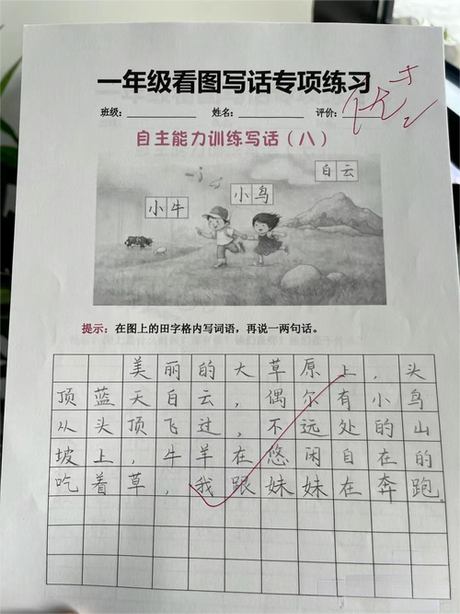 一年级看图写话专项练习
班级：
姓名：
评价：优+
自主能力训练写话（八）
白云
小鸟
小牛
提示：在图上的田字格内写词语，再说一两句话。
美丽的大草原上，头
顶蓝天白云，偶尔有小鸟
从头顶飞过，不远处的山
坡上，牛羊在悠闲自在的
吃着草，我跟妹妹在奔跑。